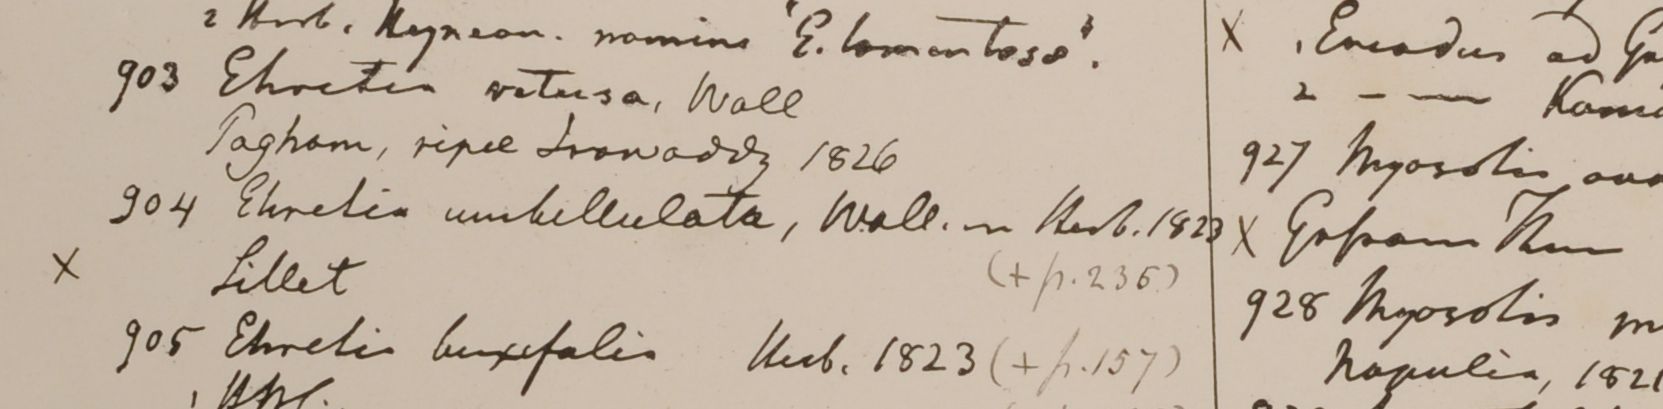 2 Herb. Heynean. nomine "E. tomentosa".
903 Ehretia retusa, Wall
Pagham, ripae Irawaddy 1826
904 Ehretia umbellulata, Wall. in Herb. 1823
X Sillet (+ p. 235)
905 Ehretia buxifolia Herb. 1823 (+ p. 157)
1 HBC.
X 1. ad
2 — —
927 Myosotis
X
928 Myosotis
Napulia, 1821